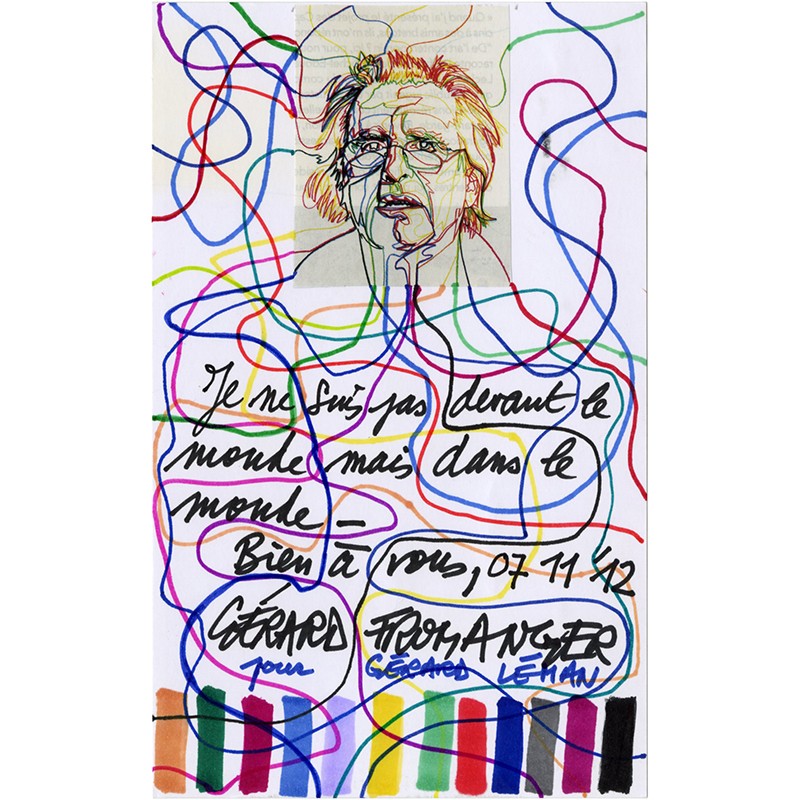 Je ne suis pas devant le
monde mais dans le
monde _
Bien à vous, 07 11 12
GÉRARD FROMANGER
pour GÉRARD LÉMAN